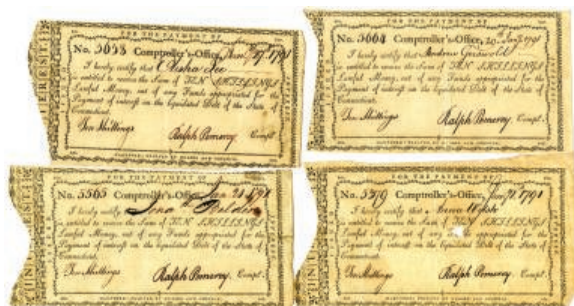 FOR THE PAYMENT OF
No. 5653 Comptroller's-Office, 1791
I hereby certify that Elisha Lee
is entitled to receive the Sum of TEN SHILLINGS
Lawful Money, out of any Funds appropriated for the
Payment of interest on the liquidated Debt of the State of
Connecticut.
Ten Shillings Ralph Pomeroy Compt.
FOR THE PAYMENT OF
No. 5664 Comptroller's-Office, 1791
I hereby certify that Andrew Griswold
is entitled to receive the Sum of TEN SHILLINGS
Lawful Money, out of any Funds appropriated for the
Payment of interest on the liquidated Debt of the State of
Connecticut.
Ten Shillings Ralph Pomeroy Compt.
FOR THE PAYMENT OF
No. 5565 Comptroller's-Office, 1791
I hereby certify
is entitled to receive the Sum of TEN SHILLINGS
Lawful Money, out of any Funds appropriated for the
Payment of interest on the liquidated Debt of the State of
Connecticut.
Ten Shillings Ralph Pomeroy Compt.
FOR THE PAYMENT OF
No. 5379 Comptroller's-Office, 1791
I hereby certify that
is entitled to receive the Sum of TEN SHILLINGS
Lawful Money, out of any Funds appropriated for the
Payment of interest on the liquidated Debt of the State of
Connecticut.
Ten Shillings Ralph Pomeroy Compt.